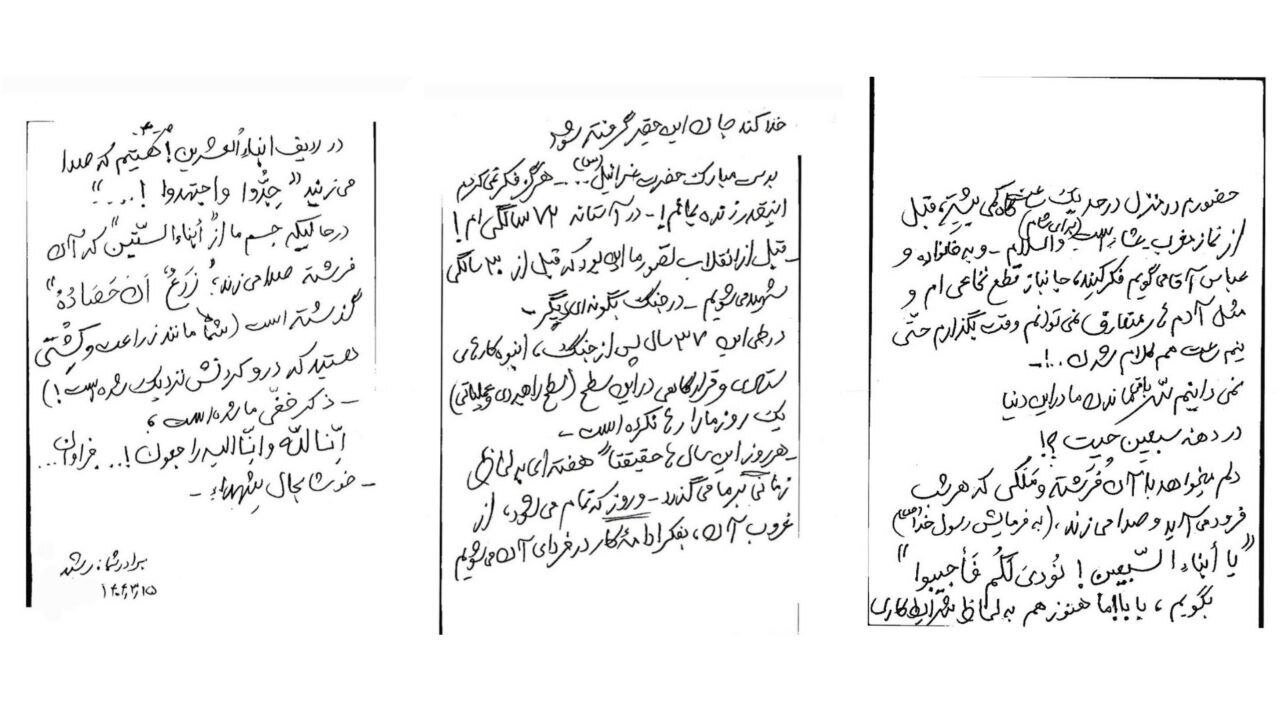 خدا کند جان این حقیر گرفته شود
بدست مبارک حضرت عزرائیل(س)... - هرگز فکر نمی‌کردم
اینقدر زنده بمانم! - در آستانه ۷۲ سالگی‌ام!
- قبل از انقلاب تصور ما این بود که قبل از ۳۰ سالگی
شهید می‌شویم - در جنگ بگونه‌ای دیگر -
در طی این ۳۷ سال پس از جنگ، انبوه کارهای
ستادی و قرارگاهی در این سطح (سطح راهبردی و عملیاتی)
یک روز ما را رها نکرده است -
- هر روز این سال‌ها حقیقتاً هفته‌ای به لحاظ
زمانی بر ما می‌گذرد - و روز که تمام می‌شود، از
غروب آن، بفکر ادامهٔ کار در فردای آن می‌شویم
حضورم در منزل در حد یک ساعت گاه کمی بیشتر، قبل
از نماز مغرب عشاء است (برای شام) والسلام - و به خانواده و
عباس آقا می‌گویم فکر کنید، جانباز قطع نخاعی‌ام و
مثل آدم‌های متعارف نمی‌توانم وقت بگذارم حتّی
نیم ساعت هم کلام شدن ...! -
نمی‌دانیم سِرّ باقیماندن ما در این دنیا
در دهنه سبعین چیست؟!
دلم می‌خواهد به آن فُرشته و مَلَکی که هر شب
فرود می‌آید و صدا می‌زند، (به فرمایش رسول خدا (ص))
"یا أبناءِ السّبعین! نُودیَ لَکُم فَأجیبوا"
بگویم، بابا! ما هنوز هم به لحاظ شرایط کاری
در ردیف ابناءُ العشرین! هستیم که صدا
می‌زنید "جِدُّوا واجتهدوا!..."
در حالیکه جسم ما از "أبناءِ السّتّین" که آن
فرشته صدا می‌زند؛ "زَرعٌ آنَ حَصادُهُ"
گذشته است (شما مانند زراعت و کِشتی
هستید که درو کردنش نزدیک شده است!)
- ذکر خفّی ما شده است؛
اِنّا لله و اِنّا الیه راجعون!... فراوان...
- خوشا بحال شهداء -
برادر شما: رشید
۱۴۰۴,۳,۱۵